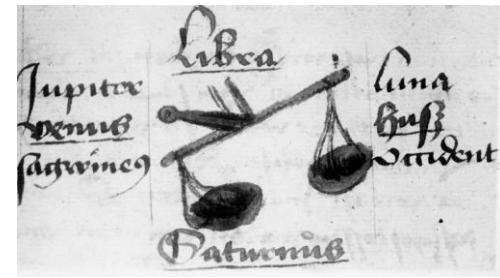 Libra
Jupiter
venus
sagwineꝰ
luna
Huſz
Occident
Saturnus